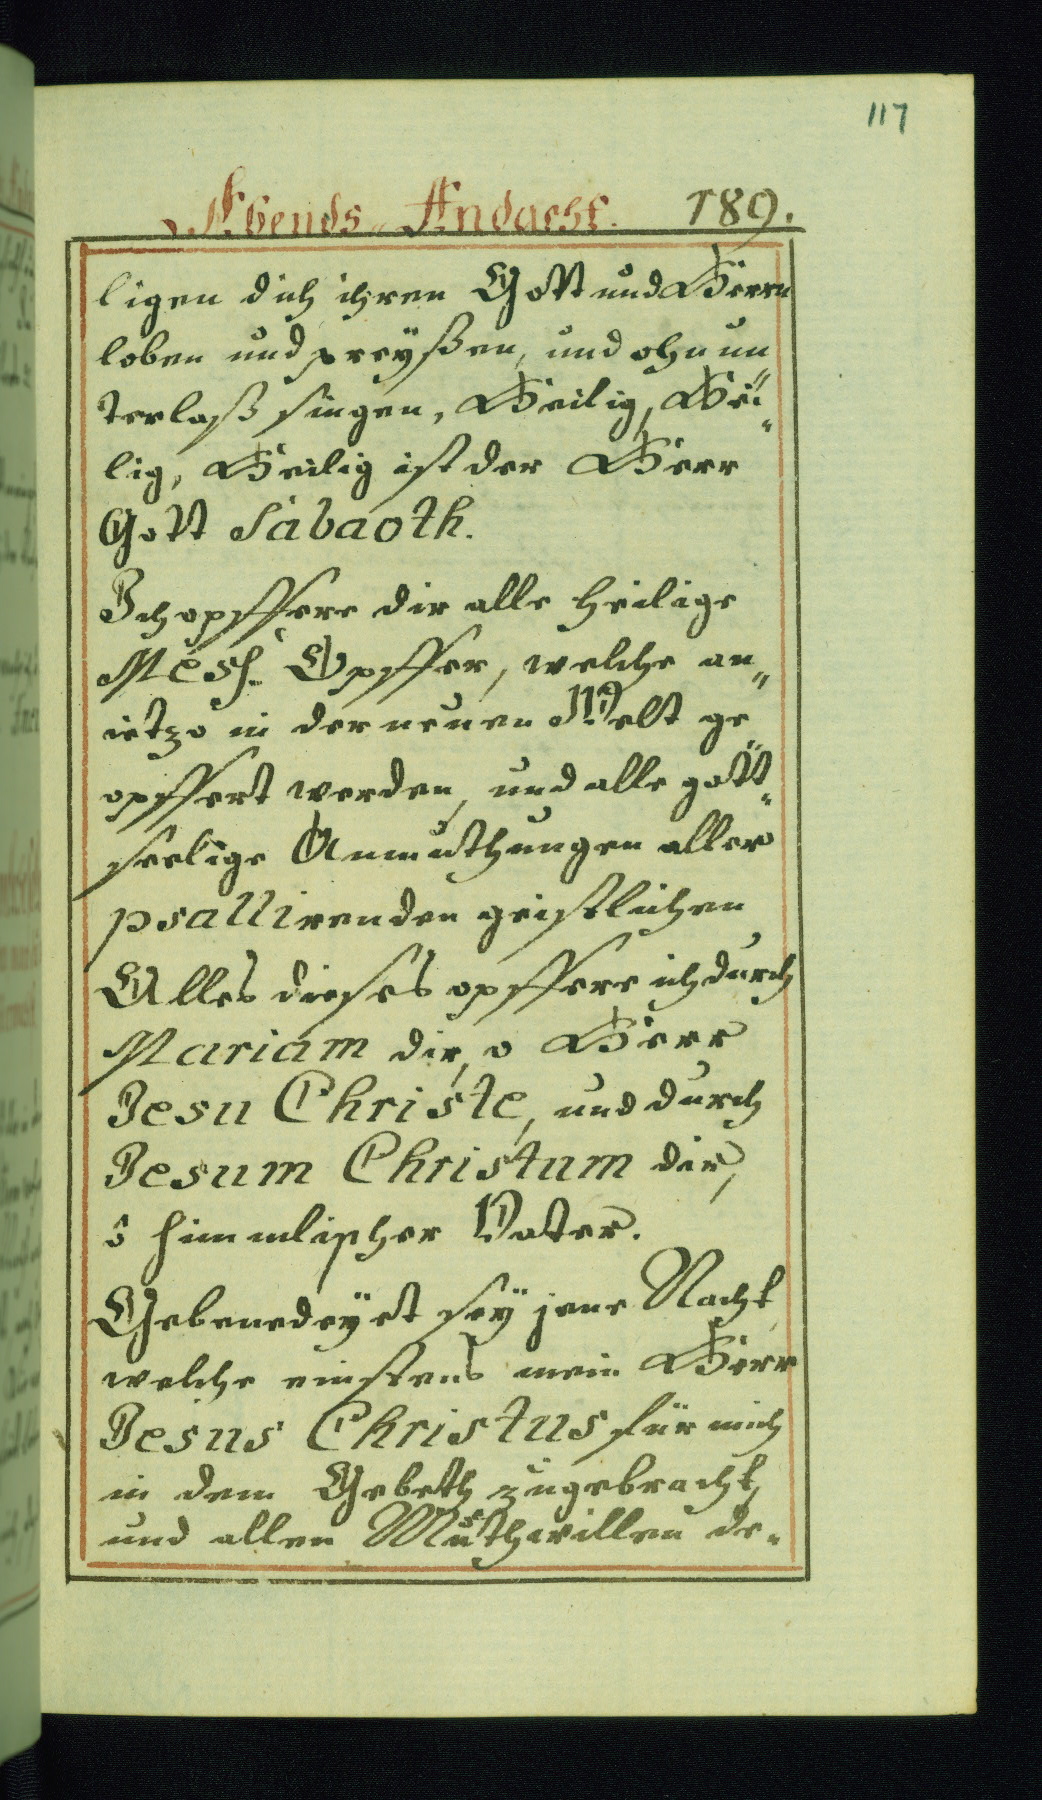 117
Abends-Andacht. 189.
ligen dich ihren Gott und Herrn
loben und preyßen, und ohn un„
terlaß singen, Heilig, Hei„
lig, Heilig ist der Herr
Gott Sabaoth.
Ich opffere dir alle heilige
Mess-Opffer, welche an„
ietzo in der neuen Welt ge„
opffert werden, und alle gott„
seelige Anmuthungen aller
psallirenden geistlichen
Alles dieses opffere ich durch
Mariam dir, o Herr
Jesu Christe, und durch
Jesum Christum dir,
ô himmlischer Vater.
Gebenedeyet sey jene Nacht
welche einstens mein Herr
Jesus Christus für mich
in dem Gebeth zugebracht,
und allen Muthwillen de-